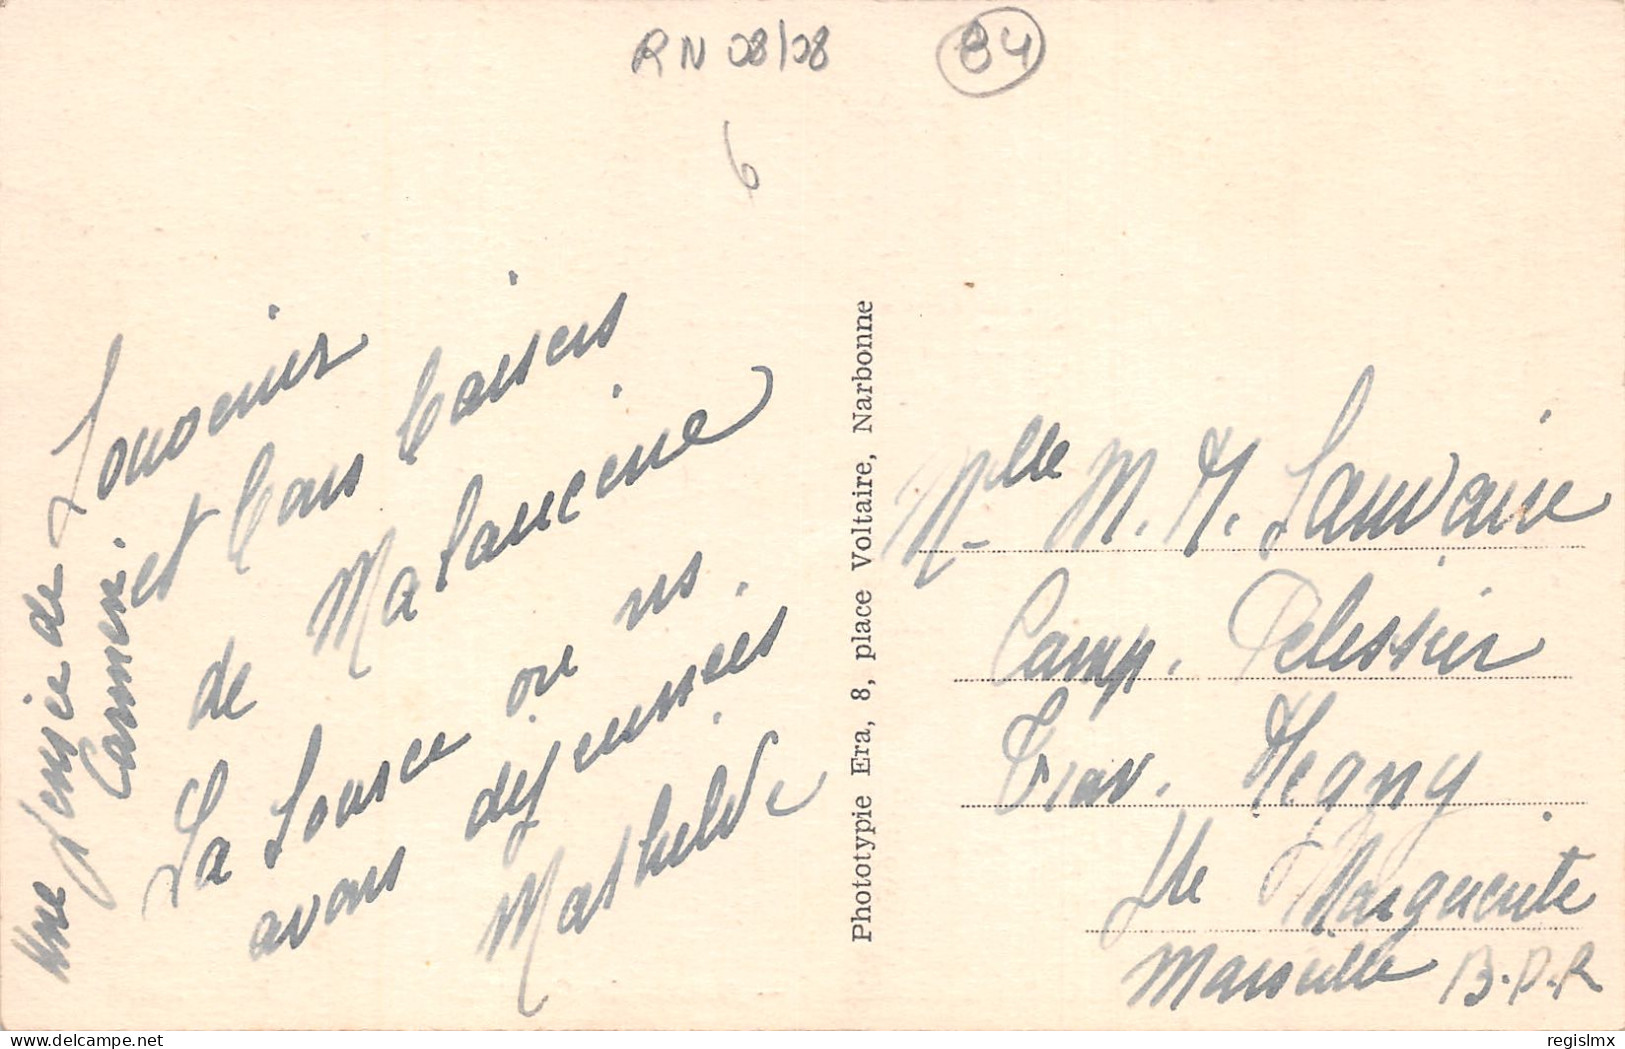 RN 08/08
84
6
Souvenir
et bons baisers
de Malaucène
La Source où ns.
avons déjeunées
Mathilde
Une pensée de
Carmen
Phototypie Era, 8, place Voltaire, Narbonne
Mlle M. H. Sauvaire
Camp. Pelessier
Trav. Regny
Ste Marguerite
Marseille B.D.R
regislmx